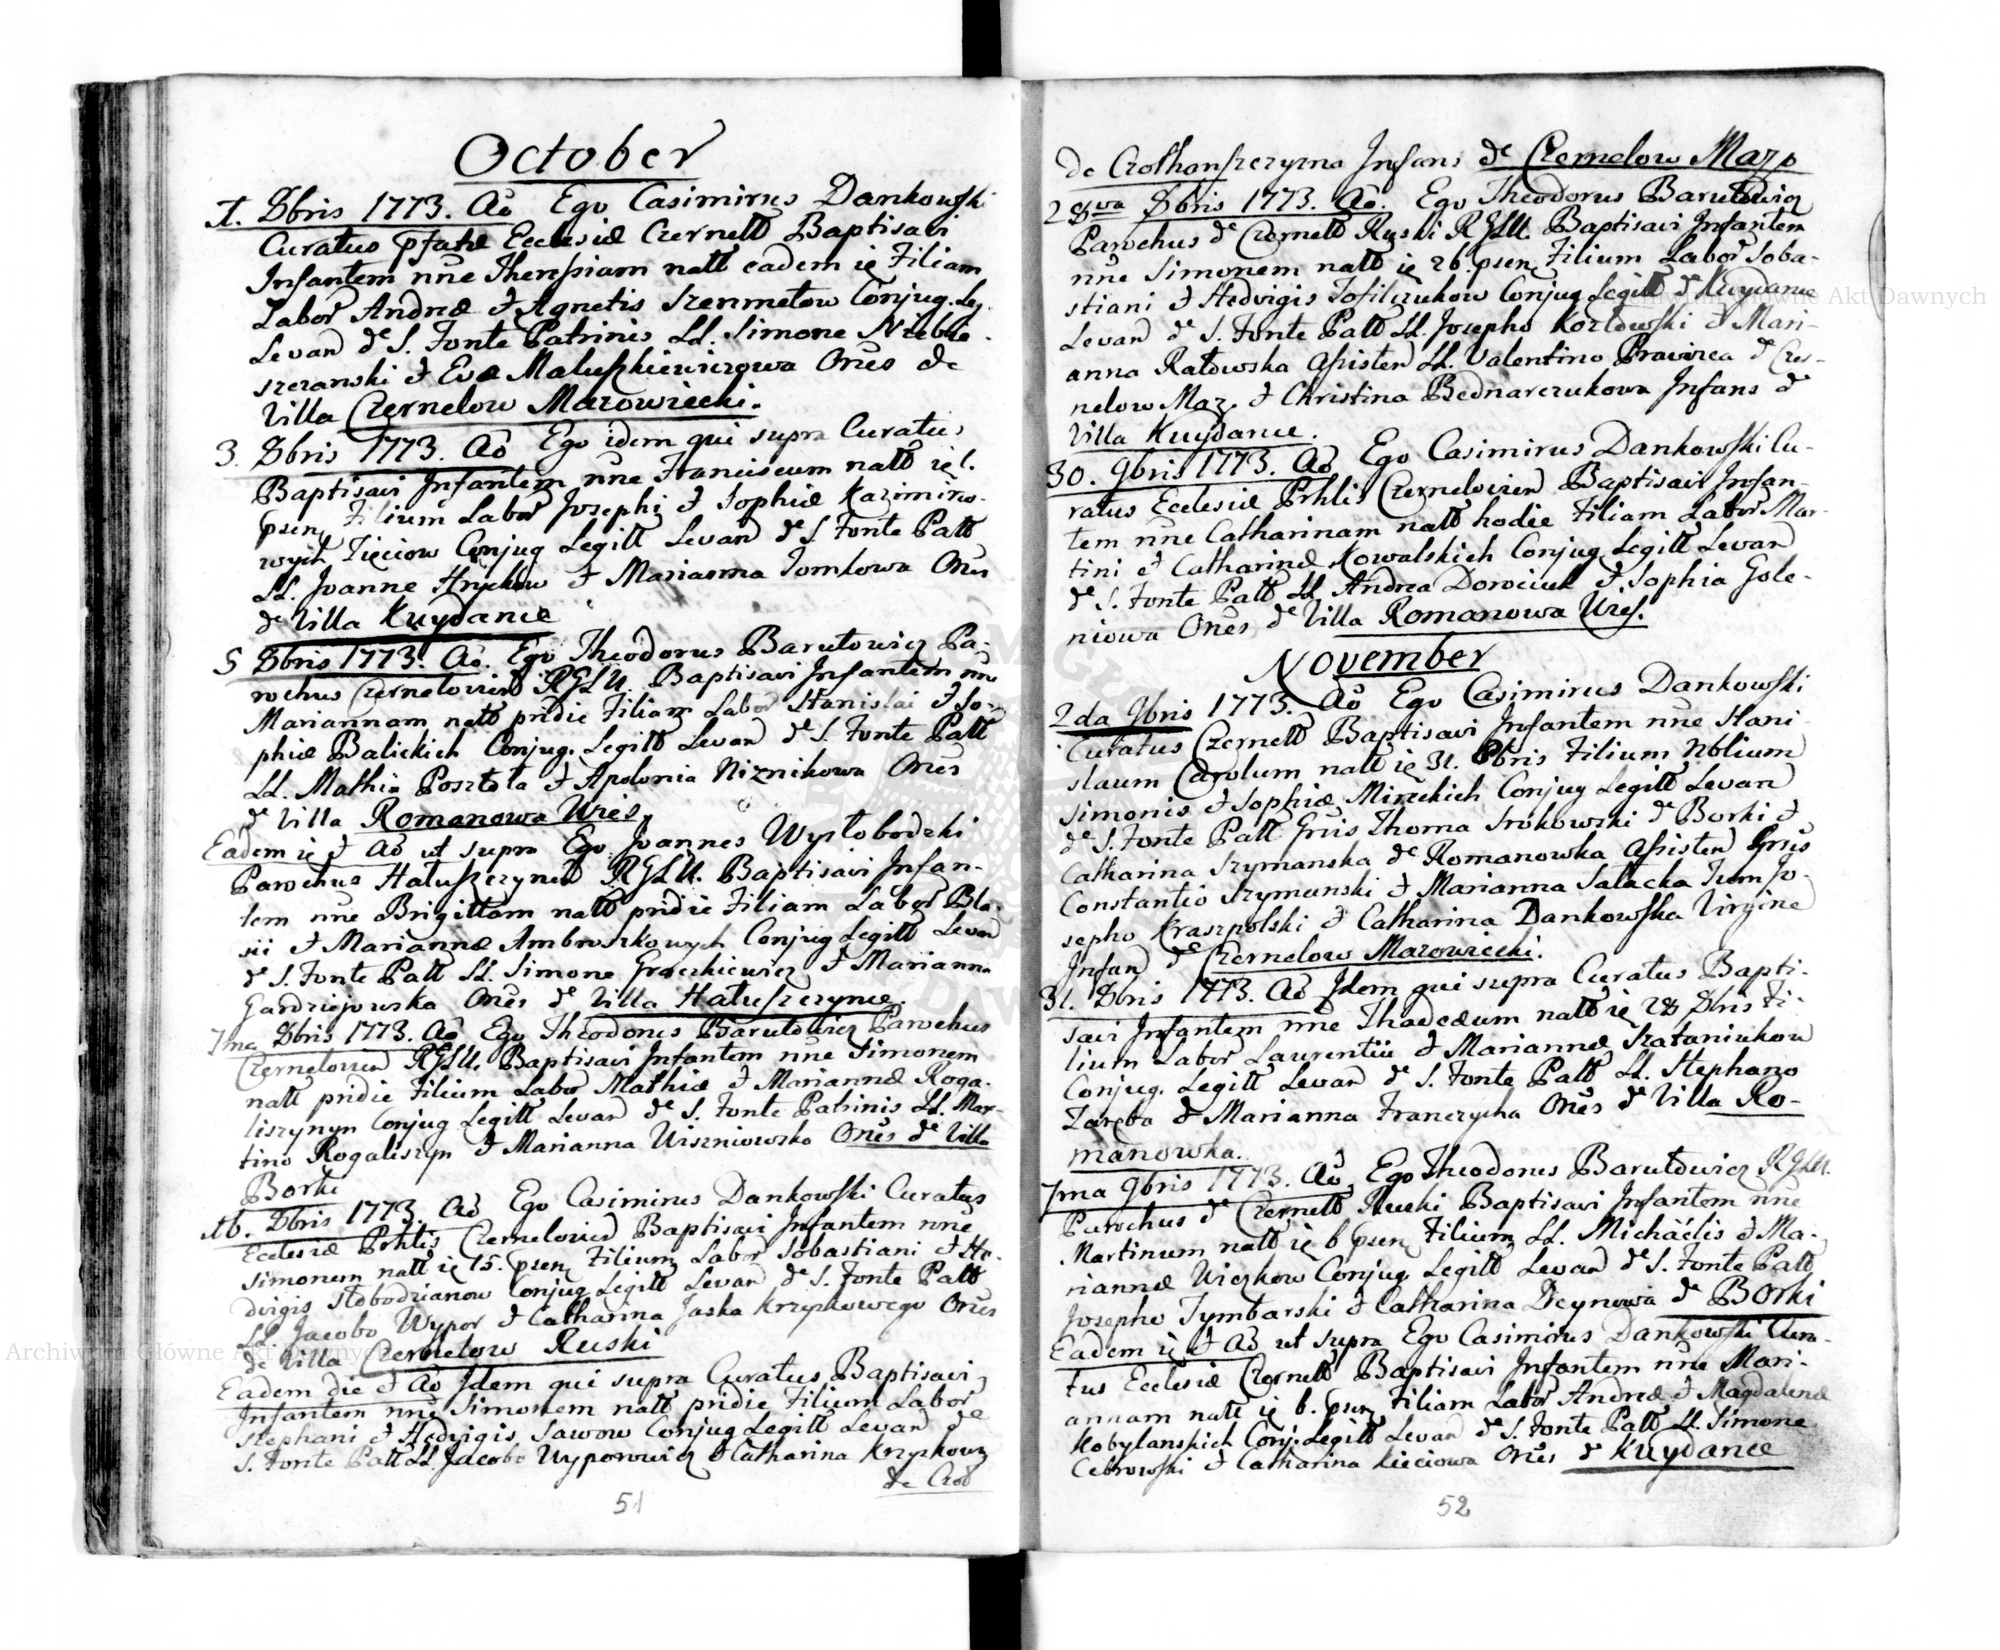 October
1. 8bris 1773. Aõ Ego Casimirus Dankowski
Curatus pfatæ Ecclesiæ Czernell Baptisavi
Infantem nne Theressiam natt eadem ie Filiam
Labor Andreæ & Agnetis Szenmetow Conjug. Leg.
Levan de S. Fonte Patrinis LL. Simone Niebie-
szczanski & Eva Maluszkiewiczowa Ones de
Villa Czernelow Mazowiecki.
3. 8bris 1773. Aõ Ego idem qui supra Curatus
Baptisavi Infantem nne Franciscum natt ie 1.
psen Filium Labor Josephi & Sophiæ Kazimiro-
wych Zieciow Conjug Legitt Levan de S Fonte Patt
LL. Joanne Hrycków & Marianna Tomkowa Ones
de Villa Kuydance
5 8bris 1773. Aõ. Ego Theodorus Barutowicz Pa-
rochus Czernelovien RGLU. Baptisavi Infantem nne
Mariannam natt pridie Filiam Labor Stanislai & So-
phiæ Balickich Conjug. Legitt Levan de S. Fonte Patt
LL. Mathia Posztola & Apolonia Niznikowa Ones
de Villa Romanowa Wies
Eadem ie & Aõ ut supra Ego Joannes Wysłobodzki
Parochus Hałuszczynen RGLU. Baptisavi Infan-
tem nne Brigittam natt pridie Filiam Labor Bla-
sii & Mariannæ Ambroszkowych Conjug Legitt Levan
de S. Fonte Patt LL. Simone Graczkiewicz & Marianna
Gardziejowska Ones de Villa Hałuszczynce.
7ma 8bris 1773. Aõ Ego Theodorus Barutowicz Parochus
Czernelovien RGLU. Baptisavi Infantem nne Simonem
natt pridie Filium Labor Mathiæ & Mariannæ Roga-
liszynyn Conjug Legitt Levan de S. Fonte Patrinis LL. Mar-
tino Rogaliszyn & Marianna Wiszniowska Ones de Villa
Borki
16. 8bris 1773. Aõ Ego Casimirus Dankowski Curatus
Ecclesiæ Prhlis Czernelovien Baptisavi Infantem nne
Simonem natt ie 15. psen Filium Labor Sobastiani & He-
dvigis Słobodzianow Conjug Legitt Levan de S. Fonte Patt
LL Jacobo Wypor & Catharina Jaska Krzyskowego Ones
de Villa Czernelow Ruski
Eadem die & Aõ Idem qui supra Curatus Baptisavi
Infantem nne Simonem natt pridie Filium Labor
Stephani & Hedvigis Sawow Conjug Legitt Levan de
S. Fonte Patt LL. Jacobo Wyporowicz & Catharina Krzyskowa
51
de Czolhanszczyzna Infans de Czernelow Maz
28va 8bris 1773. Aõ. Ego Theodorus Barutowicz
Parochus de Czernell Ruski RGLU. Baptisavi Infantem
nne Simonem natt ie 26. psen Filium Labor Soba-
stiani & Hedvigis Tofilczukow Conjug Legitt de Kuydance
Levan de S. Fonte Patt LL. Josepho Kozłowski & Mari-
anna Ratowska Assisten LL. Valentino Prawica de Czer-
nelow Maz. & Christina Bednarczukowa Infans de
Villa Kuydance.
30. 9bris 1773. Aõ Ego Casimirus Dankowski Cu-
ratus Ecclesiæ Prhlis Czernelovien Baptisavi Infan-
tem nne Catharinam natt hodie Filiam Labor Mar-
tini & Catharinæ Kowalskich Conjug Legitt Levan
de S. Fonte Patt LL Andrea Dorociuk & Sophia Gole-
niowa Ones de Villa Romanowa Wies.
November
2da 9bris 1773. Aõ Ego Casimirus Dankowski
Curatus Czernell Baptisavi Infantem nne Stani-
slaum Carolum natt ie 31. 8bris Filium Nblium
Simonis & Sophiæ Miruckich Conjug Legitt Levan
de S. Fonte Patt Gnis Thoma Srokowski de Borki &
Catharina Szymanska de Romanowka Assisten Gnis
Constantio Szymanski & Marianna Sałacka Tum Jo-
sepho Kraszpolski & Catharina Dankowska Virgine
Infan de Czernelow Mazowiecki.
31. 8bris 1773. Aõ Idem qui supra Curatus Bapti-
savi Infantem nne Thadæum natt ie 28 8bris Fi-
lium Labor Laurentii & Mariannæ Szataniukow
Conjug. Legitt Levan de S. Fonte Patt LL. Stephano
Zaręba & Marianna Franczycha Ones de Villa Ro-
manowka.
7ma 9bris 1773. Aõ, Ego Theodorus Barutowicz RGLU.
Parochus de Czernell Ruski Baptisavi Infantem nne
Martinum natt ie 6 psen Filium LL. Michäelis & Ma-
riannæ Wiczkow Conjug Legitt Levan de S. Fonte Patt
Josepho Tymbarski & Catharina Deynowa de Borki
Eadem ie & Aõ ut supra Ego Casimirus Dankowski Cura-
tus Ecclesiæ Czernell Baptisavi Infantem nne Mari-
annam natt ie 6. psen Filiam Labor Andreæ & Magdalenæ
Kobylanskich Conj. Legitt Levan de S. Fonte Patt LL. Simone
Cebrowski & Catharina Kieciowa Ones de Kuydance
52
Archiwum Główne Akt Dawnych
Archiwum Główne Akt Dawnych